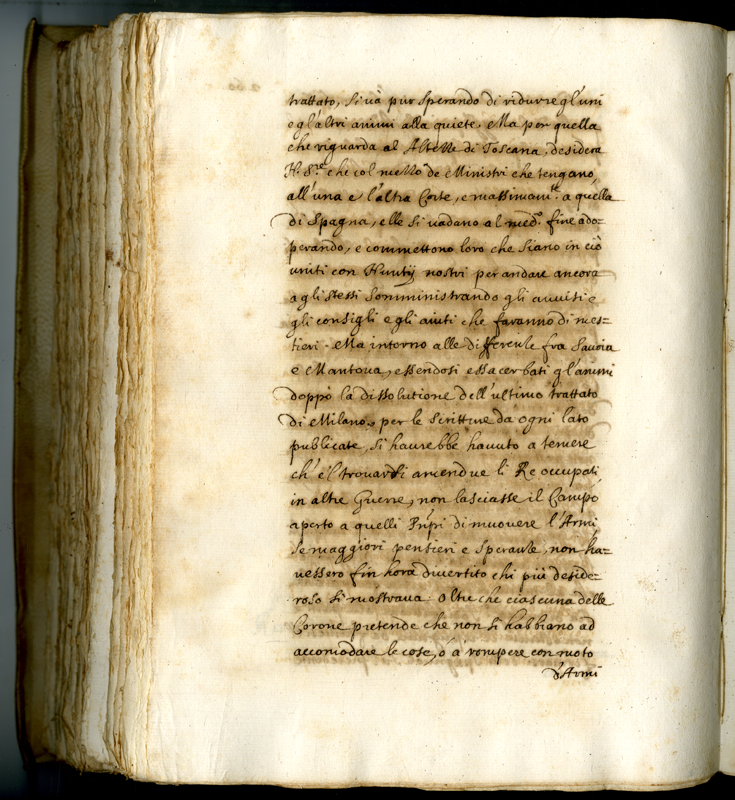 trattato, si và pur sperando di ridurre gl'uni
e gl'altri animi alla quiete. Ma per quella
che riguarda al Altezze di Toscana, desidera
N. S.re che col mezzo de Ministri che tengano,
all'una e l'altra Corte, e massimam.te a quella
di Spagna, elle si vadano al med.o fine ado=
perando, e commettono loro che siano in ciò
uniti con Nuntij nostri per andare ancora
a gli stessi somministrando gli auuisi e
gli consigli e gli aiuti che faranno di mes=
tieri. Ma intorno alle differenze fra Sauoia
e Mantoua, essendosi essacerbati gl'animi
doppò la dissolutione dell'ultimo trattato
di Milano, per le scritture da ogni lato
publicate, si haurebbe hauuto a temere
ch'el trouarsi amendue li Re occupati
in altre Guerre, non lasciasse il Campo
aperto a quelli Pnpi di muouere l'Armi
se maggiori pensieri e speranze, non ha=
uessero fin hora diuertito chi più deside=
roso si mostraua. Oltre che ciascuna delle
Corone pretende che non si habbiano ad
accomodare le cose, ò a rompere con moto
d'Armi